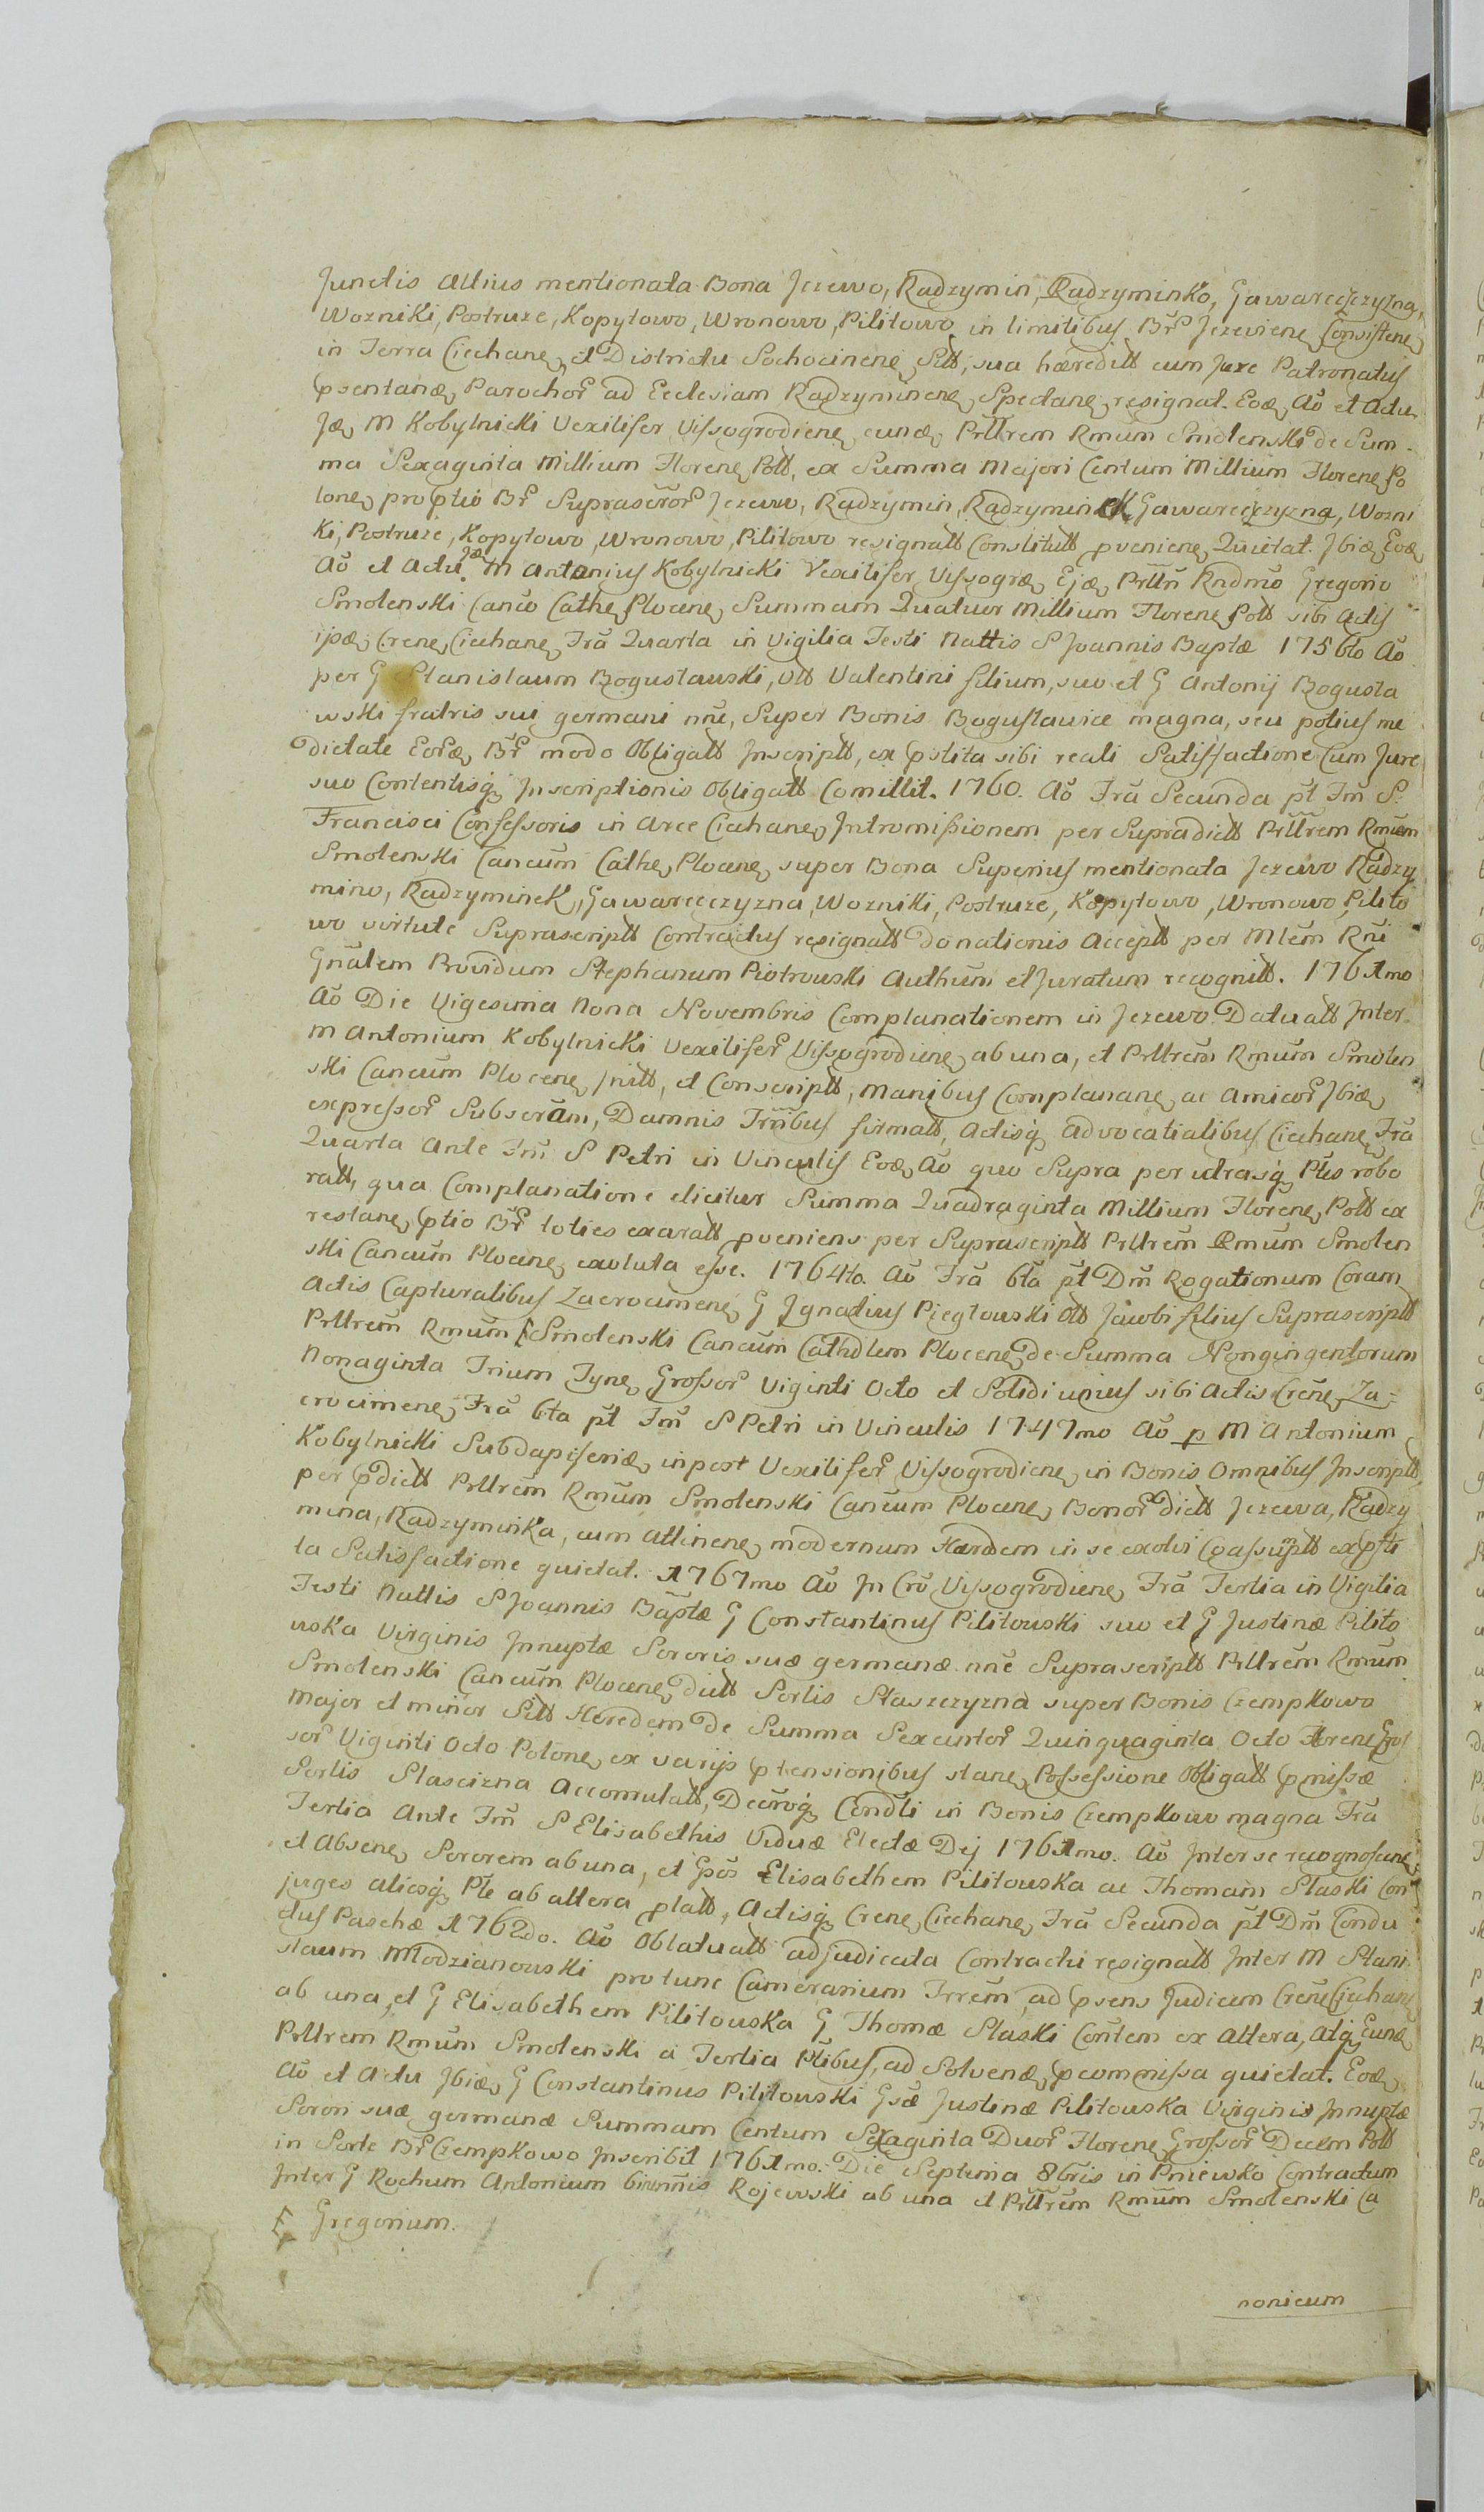 Junctis Altius mentionata Bona Jezewo, Radzymin, Radzyminko, Gawarecczyzna,
Wozniki, Postruze, Kopytowo, Wronowo, Pilitowo in limitibus Br̃ Jezeviene Consistene
in Terra Ciechane, et Districtu Sochocinene Sitt, sua hæreditt cum Jure Patronatus
psentanæ, Parochor̃ ad Ecclesiam Radzyminene, Spectane, resignat. Eoæ, Aõ et Actu
Jæ, M Kobylnicki Vexilifer Vissogrodiene, eunæ, Prllrem Rmum Smolenski de Sum-
ma Sexaginta Millium Florene, Poll, ex Summa Majori Centum Millium Florene, Po
lone, pro ptio Br̃ Suprascr̃or̃ Jezewo, Radzymin, Radzyminek, Gawarecczyzna, Wozni
ki, Postruze, Kopytowo, Wronowo, Pilitowo resignatt Constitutt pveniene, Quietat. Jbiæ, Eoæ,
Aõ et Actu. Jæ M Antonius Kobylnicki Vexilifer Vissogræ, Ejæ, Prllrĩ Rndmõ Gregorio
Smolenski Canco Cathe, Plocene, Summam Quatuor Millium Florene, Poll sibi Actis
ipæ, Crene, Ciechane, Frã Quarta in Vigilia Festi Nattis S Joannis Baptæ 1756to Aõ
per G Stanislaum Bogustawski, Olt Valentini filium, suo et G Antonij Bogusta
wski fratris sui germani nñe, Super Bonis Bogustawice magna, seu potius me
dietate Eor̃æ, Br̃ modo Obligatt Jnscriptt, ex pstita sibi reali Satisfactione Cum Jure
suo Contentisq, Jnscriptionis Obligatt Comittit. 1760. Aõ Frã Secunda pt Fm̃ S.
Francisci Confessoris in Arce Ciechane, Jntromissionem per Supradictt Prllrem Rmum
Smolenski Cancum Cathe, Plocene, super Bona Superius mentionata Jezewo Radzy
mino, Radzyminek, Gawarecczyzna, Wozniki, Postruze, Kopytowo, Wronowo, Pilito
wo virtute Suprascriptt Contractus resignatt donationis Acceptt per Mlem Rñi
Gñalem Providum Stephanum Piotrowski Authum et Juratum recognitt. 1761mo
Aõ Die Vigesima Nona Novembris Complanationem in Jezewo Datuatt Jnter
M Antonium Kobylnicki Vexilifer̃ Vissogrodiene, ab una, et Prllrẽm Rmũm Smolen
ski Cancum Plocene, Jnitt, et Conscriptt, Manibus Complanane, ac Amicor̃ Jbiæ,
expressor̃ Subscrãm, Damnis Trrñibus firmatt, Actisq, Advocatialibus Ciechane, Frã
Quarta Ante Fm̃ S Petri in Vinculis Eoæ, Aõ quo Supra per utrasq, Ptes robo
ratt, qua Complanatione elicitur Summa Quadraginta Millium Florene, Poll ex
restane, ptio Br̃ toties exaratt pveniens per Suprascriptt Prllrẽm Rmum Smolen
ski Cancum Plocene, exoluta esse. 1764to. Aõ Frã 6ta pt Dm̃ Rogationum Coram
Actis Capturalibus Zacrocimene, G Jgnatius Pieglowski Olt Jacobi filius Suprascriptt
Prllrem̃ Rmum [ Smolenski Cancum Cathdlem Plocene, de Summa Nongingentorum
Nonaginta Trium Tyne, Grossor̃ Viginti Octo et Solidi unius sibi Actis Crene, Za-
crocimene, Frã 6ta pt Fm̃ S Petri in Vinculis 1747mo Aõ p M Antonium
Kobylnicki Subdapiferiæ, inpost Vexilifer̃ Vissogrodiene, in Bonis Omnibus Jnscriptt,
per pdictt Prllrẽm Rmũm Smolenski Cancum Plocene, Bonor̃ dictt Jezewa, Radzy
mina, Radzyminka, cum Attinene, modernum Hærdem in se exolvi Coassuptt ex psti
ta Satisfactione quietat. 1767mo Aõ Jn Crõ Vissogrodiene, Frã Tertia in Vigilia
Festi Nattis S Joannis Baptæ G Constantinus Pilitowski suo et G Justinæ Pilito
wska Virginis Jnnuptæ Sororis suæ germanæ nñe Suprascriptt Prllrẽm Rmũm
Smolenski Cancum Plocene, dictt Sortis Staszczyzna super Bonis Czempkowo
Major et minor Sitt Heredem de Summa Sexcentor̃ Quinquaginta Octo Florene, Gros
sor̃ Viginti Octo Polone, ex varijs ptensionibus stane, Possessione Obligatt pmissæ
Sortis Stascizna Accomulatt, Decroq, Cendti in Bonis Czempkowo magna Frã
Tertia Ante Fm̃ S Elisabethis Viduæ Electæ Dej 1761mo. Aõ Jnter se recognoscene,
et Absene, Sororem ab una, et Gsõs Elisabethem Pilitowska ac Thomam Staski Con
juges aliosq, Pte ab altera platt, Actisq, Crene, Ciechane, Frã Secunda pt Dm̃ Condu
ctus Paschæ 1762do. Aõ Oblatuatt adjudicata Contractu resignatt Jnter M Stani
slaum Mlodzianowski pro tunc Camerarium Trrẽm, ad psens Judicem Crene Ciechane,
ab una, et G Elisabethem Pilitowska G Thomæ Staski Contem ex Altera, Atq, Eunæ
Prllrem Rmum Smolenski a Tertia Ptibus, ad Solvenæ, pcommissa quietat. Eoæ,
Aõ et Actu Jbiæ, G Constantinus Pilitowski Gsæ Justinæ Pilitowska Virginis Jnnuptæ
Sorori suæ germanæ Summam Centum Sexaginta Duor̃ Florene, Grossor̃ Decem Poll
in Sorte Br̃ Czempkowo Jnscribit 1761mo. Die Septima 8bris in Pniewko Contractum
Jnter G Rochum Antonium binomis Rojewski ab una et Prllrẽm Rmum Smolenski Ca
[ Gregorium.
nonicum